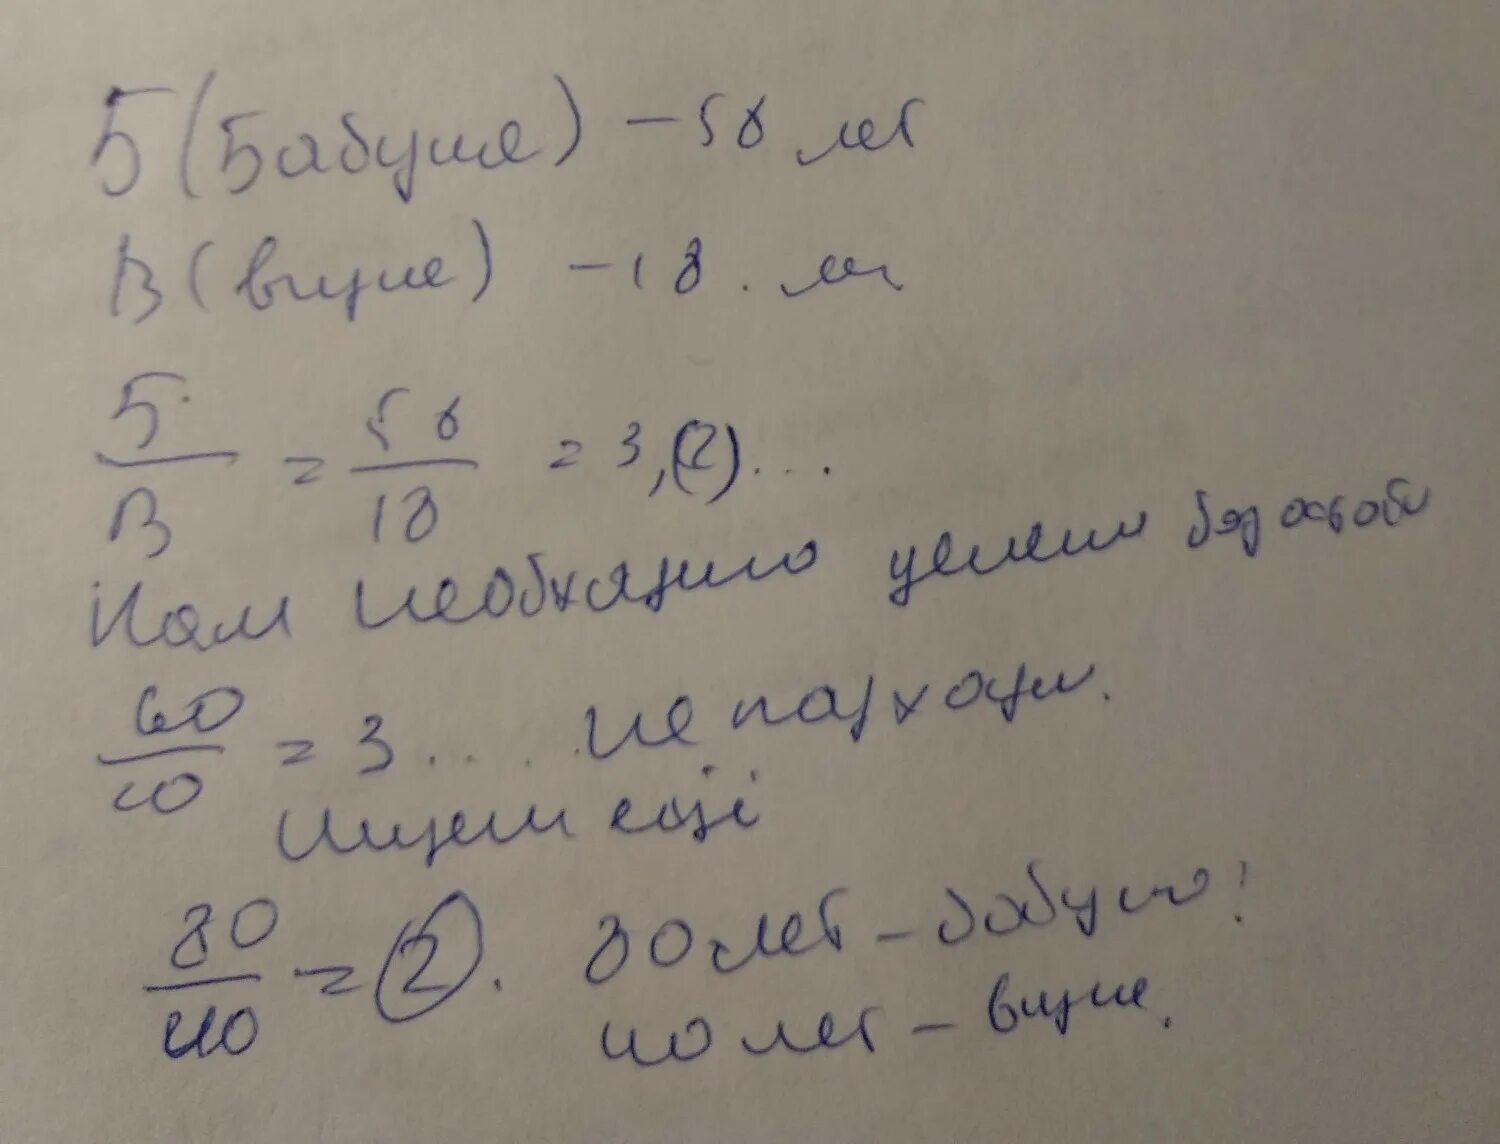 Б (Бабушке) - 58 лет
В (внучке) - 18. лет
Б/В = 58/18 = 3,(2)....
Нам необходимо целыми без остатка
60/20 = 3.... не подходит.
Ищем ещё
80/40 = 2. 80 лет - бабушке!
40 лет - внучке.